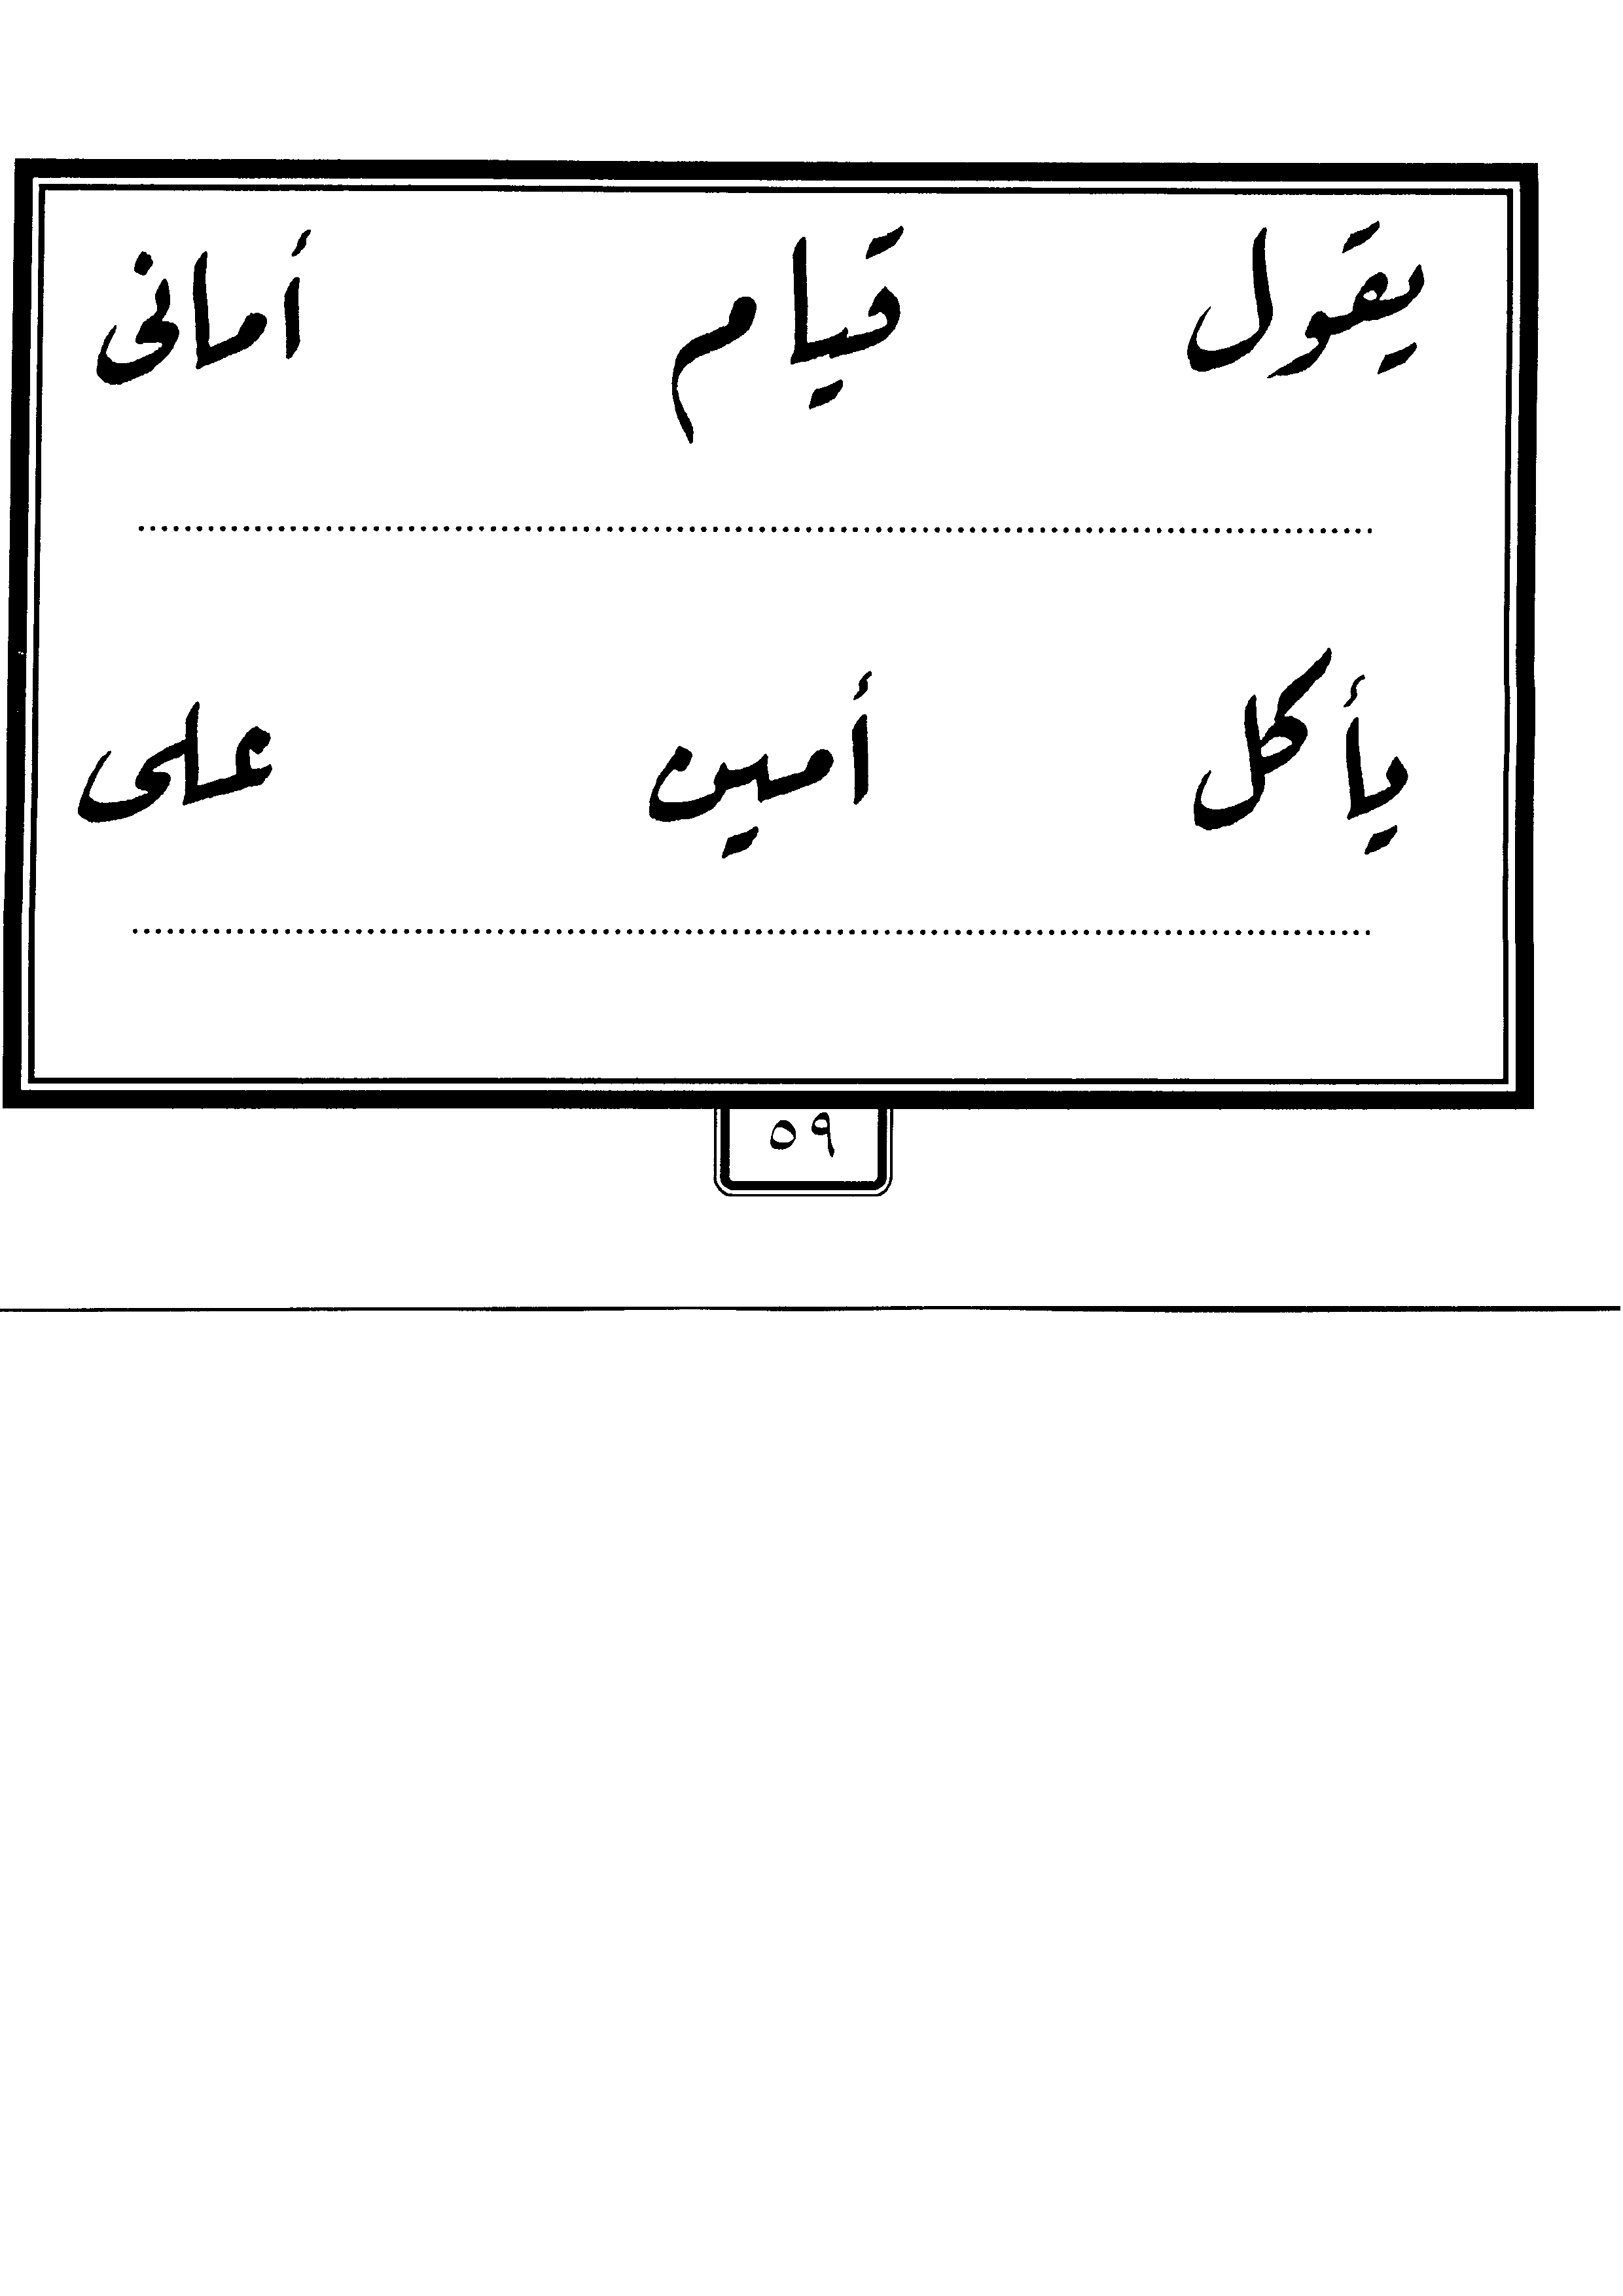 يقول قيام أمانى
يأكل أمين على
٥٩